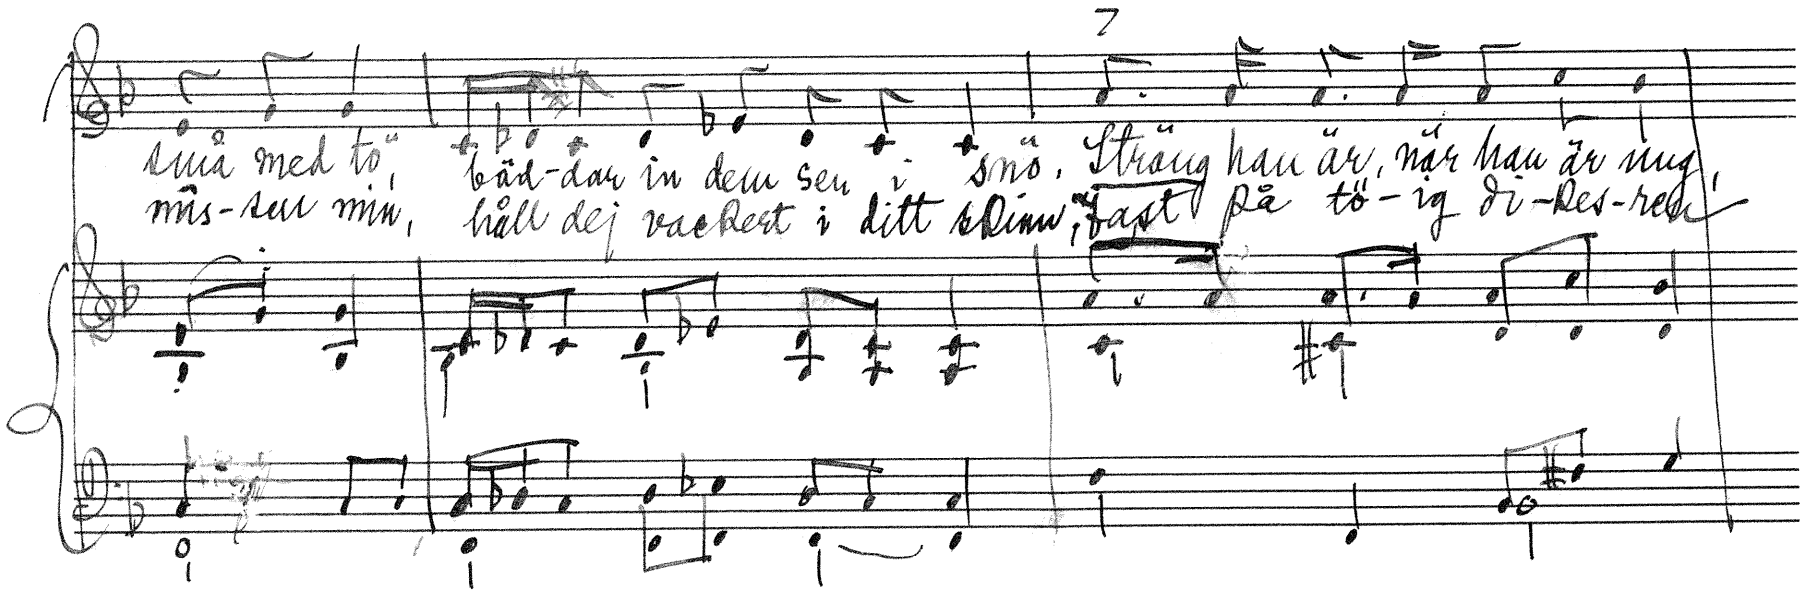 7
små med tö, bäd-dar in dem sen i snö. Sträng han är, när han är ung,
nis-sen min, håll dej vackert i ditt skinn, fast på tö-ig di-kes-ren